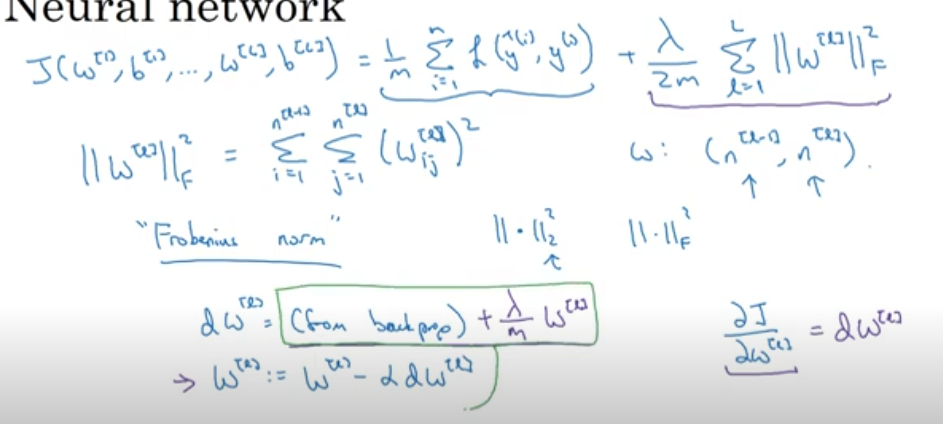 Neural network
J(ω^[1], b^[1], ..., ω^[L], b^[L]) = 1/m Σ_{i=1}^{n} ℒ(ŷ^(i), y^(i)) + λ/2m Σ_{l=1}^{L} ||ω^[l]||_F^2
||ω^[l]||_F^2 = Σ_{i=1}^{n^[l-1]} Σ_{j=1}^{n^[l]} (ω_ij^[l])^2 ω: (n^[l-1], n^[l]).
↑ ↑
"Frobenius norm" ||·||_2^2 ||·||_F^2
↑
dω^[l] = (from backprop) + λ/m ω^[l] ∂J/∂ω^[l] = dω^[l]
→ ω^[l] := ω^[l] - α dω^[l]